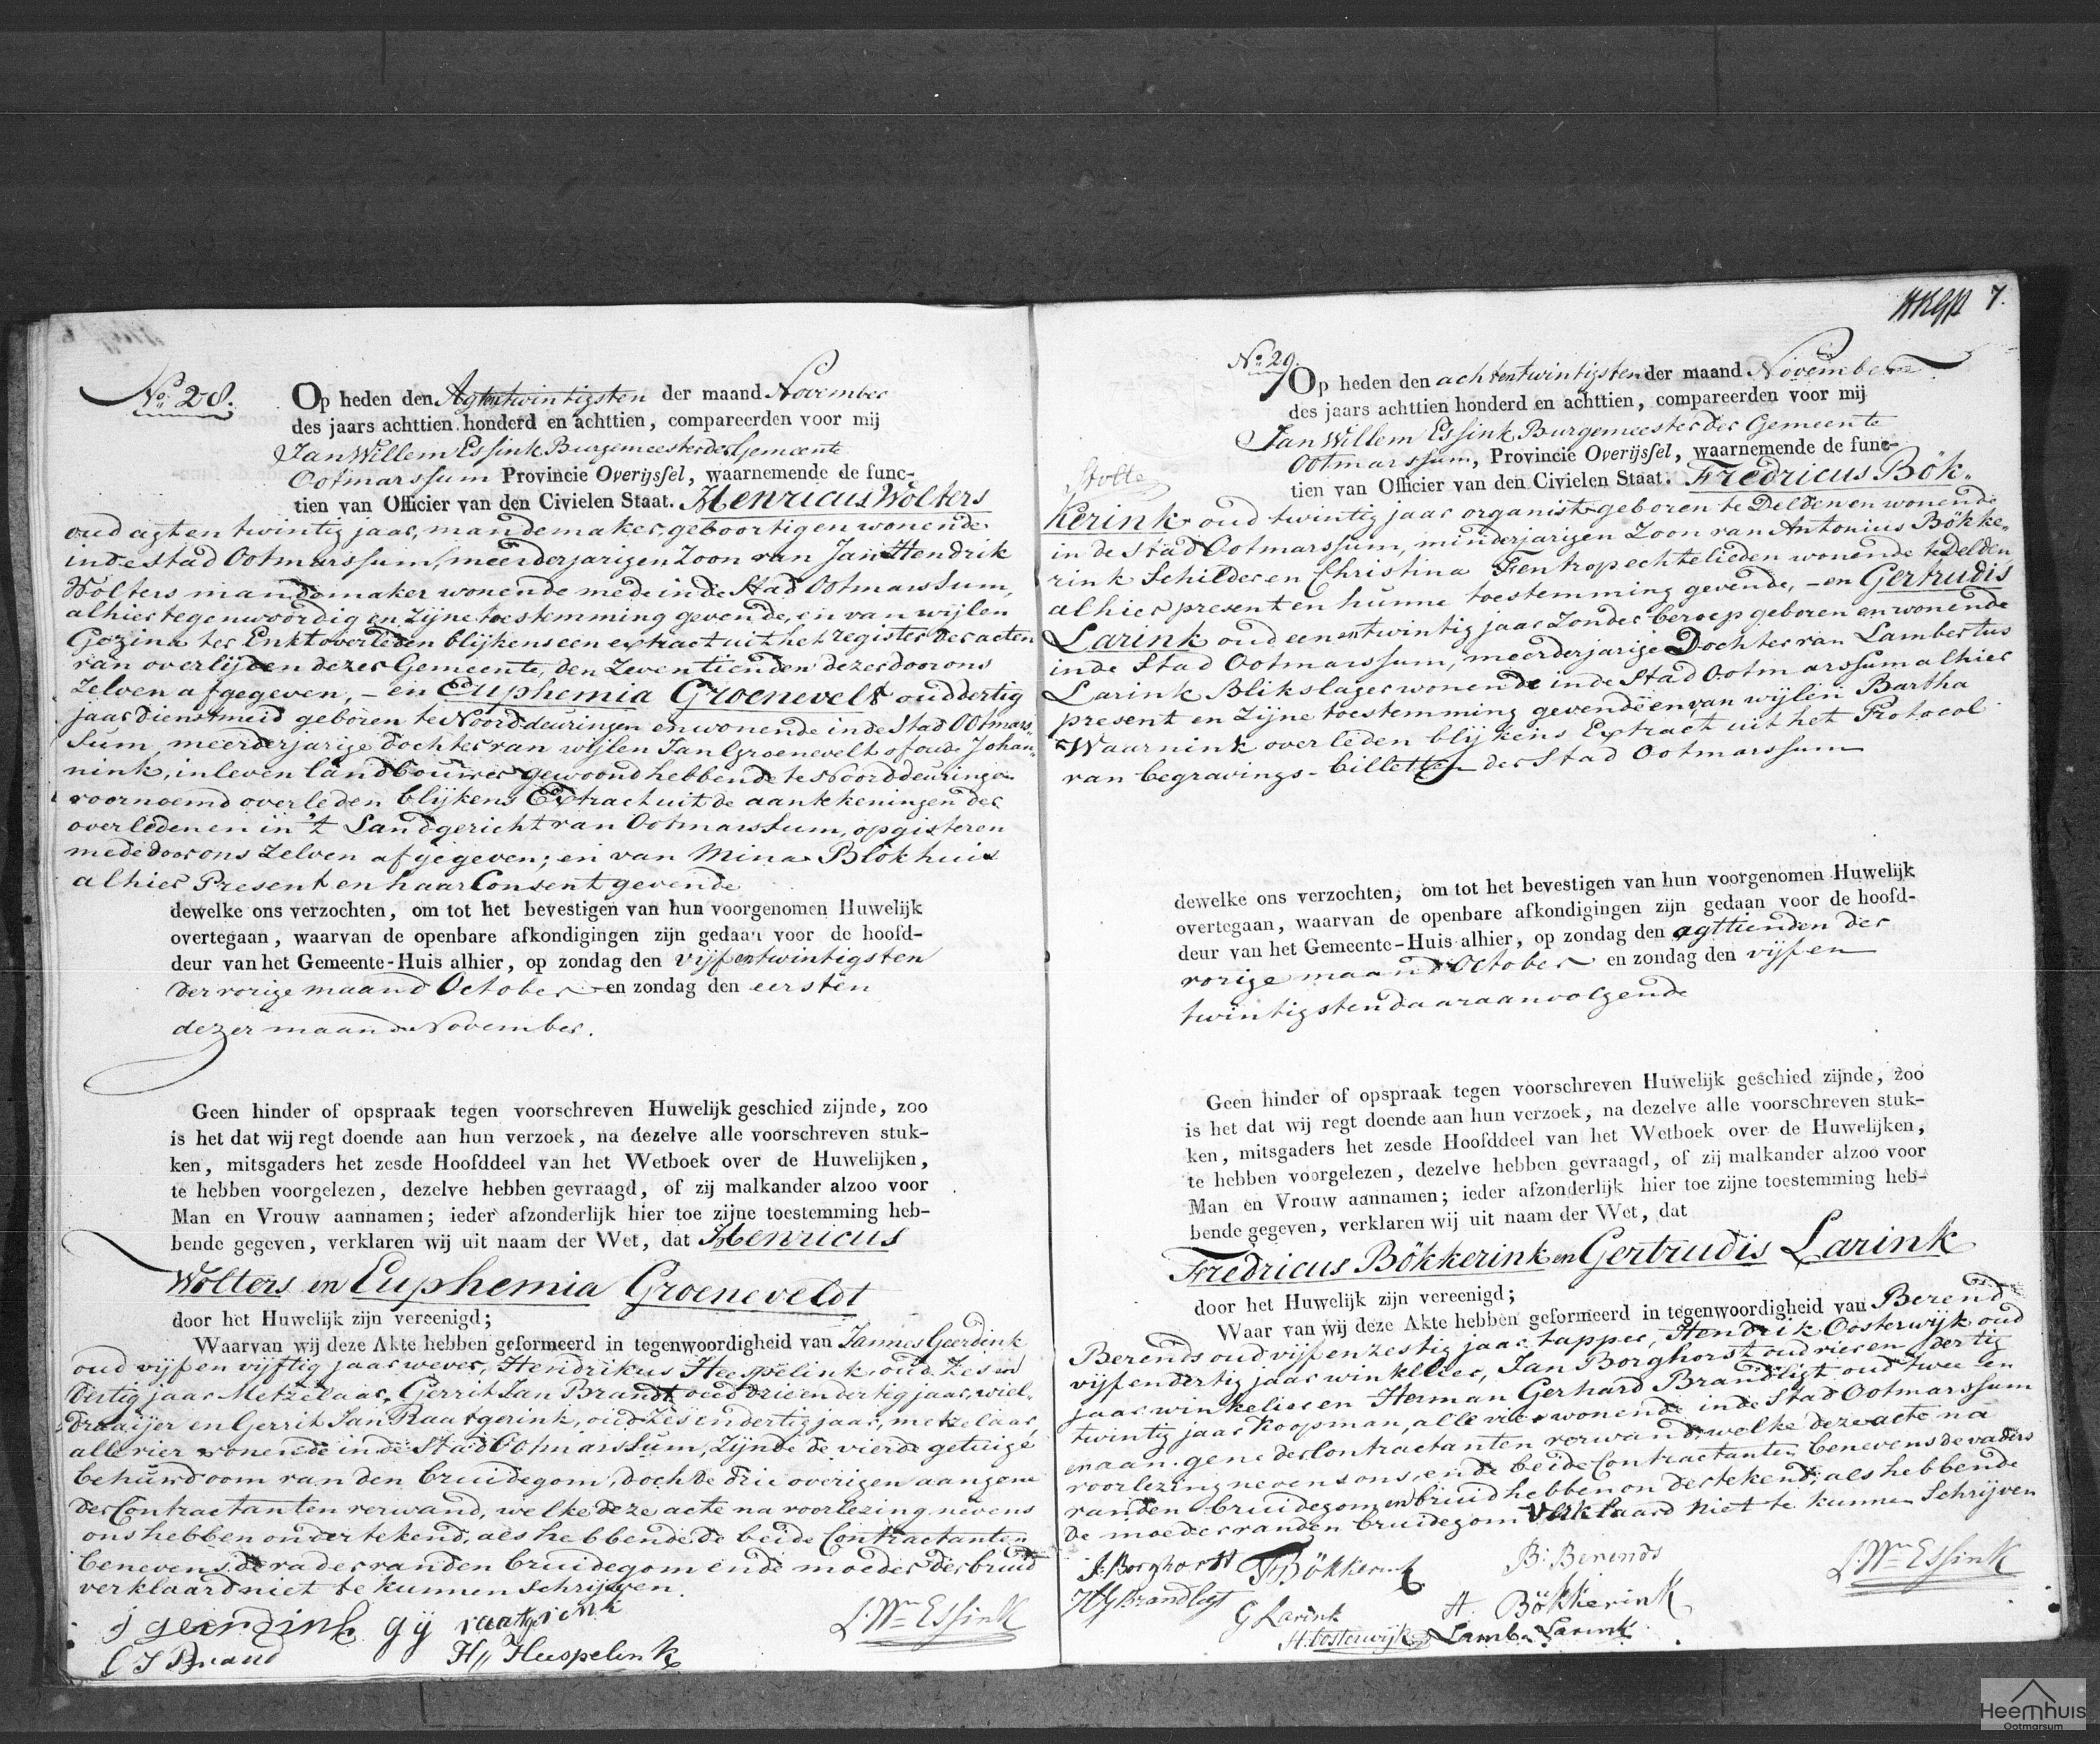 No. 28.
Op heden den Agtentwintigsten der maand November
des jaars achttien honderd en achttien, compareerden voor mij
Jan Willem Essink Burgemeester der Gemeente
Ootmarssum Provincie Overijssel, waarnemende de func-
tien van Officier van den Civielen Staat. Henricus Wolters
oud agt en twintig jaar, mandemaker, geboortig en wonende
in de stad Ootmarssum, meerderjarigen Zoon van Jan Hendrik
Wolters mandemaker wonende mede in de Stad Ootmarssum,
alhier tegenwoordig en Zijne toestemming gevende, en van wijlen
Gezina ter Enkt overleden blijkens een extract uit het register der acten
van overlijden dezer Gemeente, den Zeventienden dezer door ons
Zelven afgegeven, - en Euphemia Groenevelt oud dertig
jaar dienstmeid geboren te Noorddeuringen en wonende in de Stad Ootmars-
sum, meerderjarige dochter van wijlen Jan Groenevelt of oude Johan-
nink, in leven landbouwer gewoond hebbende te Noorddeuringen
voornoemd overleden blijkens Extract uit de aantekeningen der
overledenen in 't Landgericht van Ootmarssum, op gisteren
mede door ons Zelven afgegeven; en van Mina Blokhuis
alhier Present en haar Consent gevende
dewelke ons verzochten, om tot het bevestigen van hun voorgenomen Huwelijk
overtegaan, waarvan de openbare afkondigingen zijn gedaan voor de hoofd-
deur van het Gemeente-Huis alhier, op zondag den vijfentwintigsten
der vorige maand October en zondag den eersten
dezer maand November.
Geen hinder of opspraak tegen voorschreven Huwelijk geschied zijnde, zoo
is het dat wij regt doende aan hun verzoek, na dezelve alle voorschreven stuk-
ken, mitsgaders het zesde Hoofddeel van het Wetboek over de Huwelijken,
te hebben voorgelezen, dezelve hebben gevraagd, of zij malkander alzoo voor
Man en Vrouw aannamen; ieder afzonderlijk hier toe zijne toestemming heb-
bende gegeven, verklaren wij uit naam der Wet, dat Henricus
Wolters en Euphemia Groeneveldt
door het Huwelijk zijn vereenigd;
Waarvan wij deze Akte hebben geformeerd in tegenwoordigheid van Jannes Geerdink
oud vijf en vijftig jaar wever, Hendrikus Heespelink, oud Zes en
dertig jaar Metzelaar, Gerrit Jan Brandt oud drie en dertig jaar, wiel-
draaijer en Gerrit Jan Raatgerink, oud zes en dertig jaar, metzelaar,
alle vier wonende in de Stad Ootmarssum, Zijnde de vierde getuige
behuwdoom van den bruidegom, doch de drie overigen aan gene
der Contractanten verwand, welke deze acte na voorlezing nevens
ons hebben ondertekend, als hebbende de beide Contractanten
benevens de vader van den bruidegom en de moeder der bruid
verklaard niet te kunnen Schrijven.
J geerdink gij raatgerink
G J Brand Hs Heespelink
J: Wm Essink
7.
No. 29.
Op heden den achtentwintigsten der maand November
des jaars achttien honderd en achttien, compareerden voor mij
Jan Willem Essink Burgemeester der Gemeente
Ootmarssum, Provincie Overijssel, waarnemende de func-
tien van Officier van den Civielen Staat. Fredricus Bök-
Stolte
Kerink oud twintig jaar organist geboren te Delden en wonende
in de Stad Ootmarssum, minderjarigen Zoon van Antonius Bökke-
rink Schilder en Christina Fentrop echtelieden wonende te Delden
alhier present en hunne toestemming gevende, - en Gertrudis
Larink oud een en twintig jaar Zonder beroep geboren en wonende
in de Stad Ootmarssum, meerderjarige Dochter van Lambertus
Larink Blikslager wonende in de Stad Ootmarssum alhier
present en Zijne toestemming gevende en van wijlen Bartha
Waarnink overleden blijkens Extract uit het Protocol
van begravings-billetten der Stad Ootmarssum
dewelke ons verzochten, om tot het bevestigen van hun voorgenomen Huwelijk
overtegaan, waarvan de openbare afkondigingen zijn gedaan voor de hoofd-
deur van het Gemeente-Huis alhier, op zondag den agttienden der
vorige maand October en zondag den vijf en
twintigsten daaraanvolgende
Geen hinder of opspraak tegen voorschreven Huwelijk geschied zijnde, zoo
is het dat wij regt doende aan hun verzoek, na dezelve alle voorschreven stuk-
ken, mitsgaders het zesde Hoofddeel van het Wetboek over de Huwelijken,
te hebben voorgelezen, dezelve hebben gevraagd, of zij malkander alzoo voor
Man en Vrouw aannamen; ieder afzonderlijk hier toe zijne toestemming heb-
bende gegeven, verklaren wij uit naam der Wet, dat
Fredricus Bökkerink en Gertrudis Larink
door het Huwelijk zijn vereenigd;
Waar van wij deze Akte hebben geformeerd in tegenwoordigheid van Berend
Berends oud vijf en zestig jaar tapper, Hendrik Oosterwijk oud
vijf en dertig jaar winkelier, Jan Borghorst oud vier en dertig
jaar winkelier en Herman Gerhard Brandligt oud twee en
twintig jaar Koopman, alle vier wonende in de Stad Ootmarssum
en aan gene der Contractanten verwand, welke deze acte na
voorlezing nevens ons, en de beide Contractanten benevens de vaders
van den bruidegom en bruid hebben ondertekend, als hebbende
de moeder van den bruidegom verklaard niet te kunnen Schrijven
J: Borghorst F Bökkerink B: Berends
J: Wm Essink
HG Brandligt G Larink A. Bökkerink
H. Oosterwijk Lamb. Larink
Heemhuis
Ootmarsum